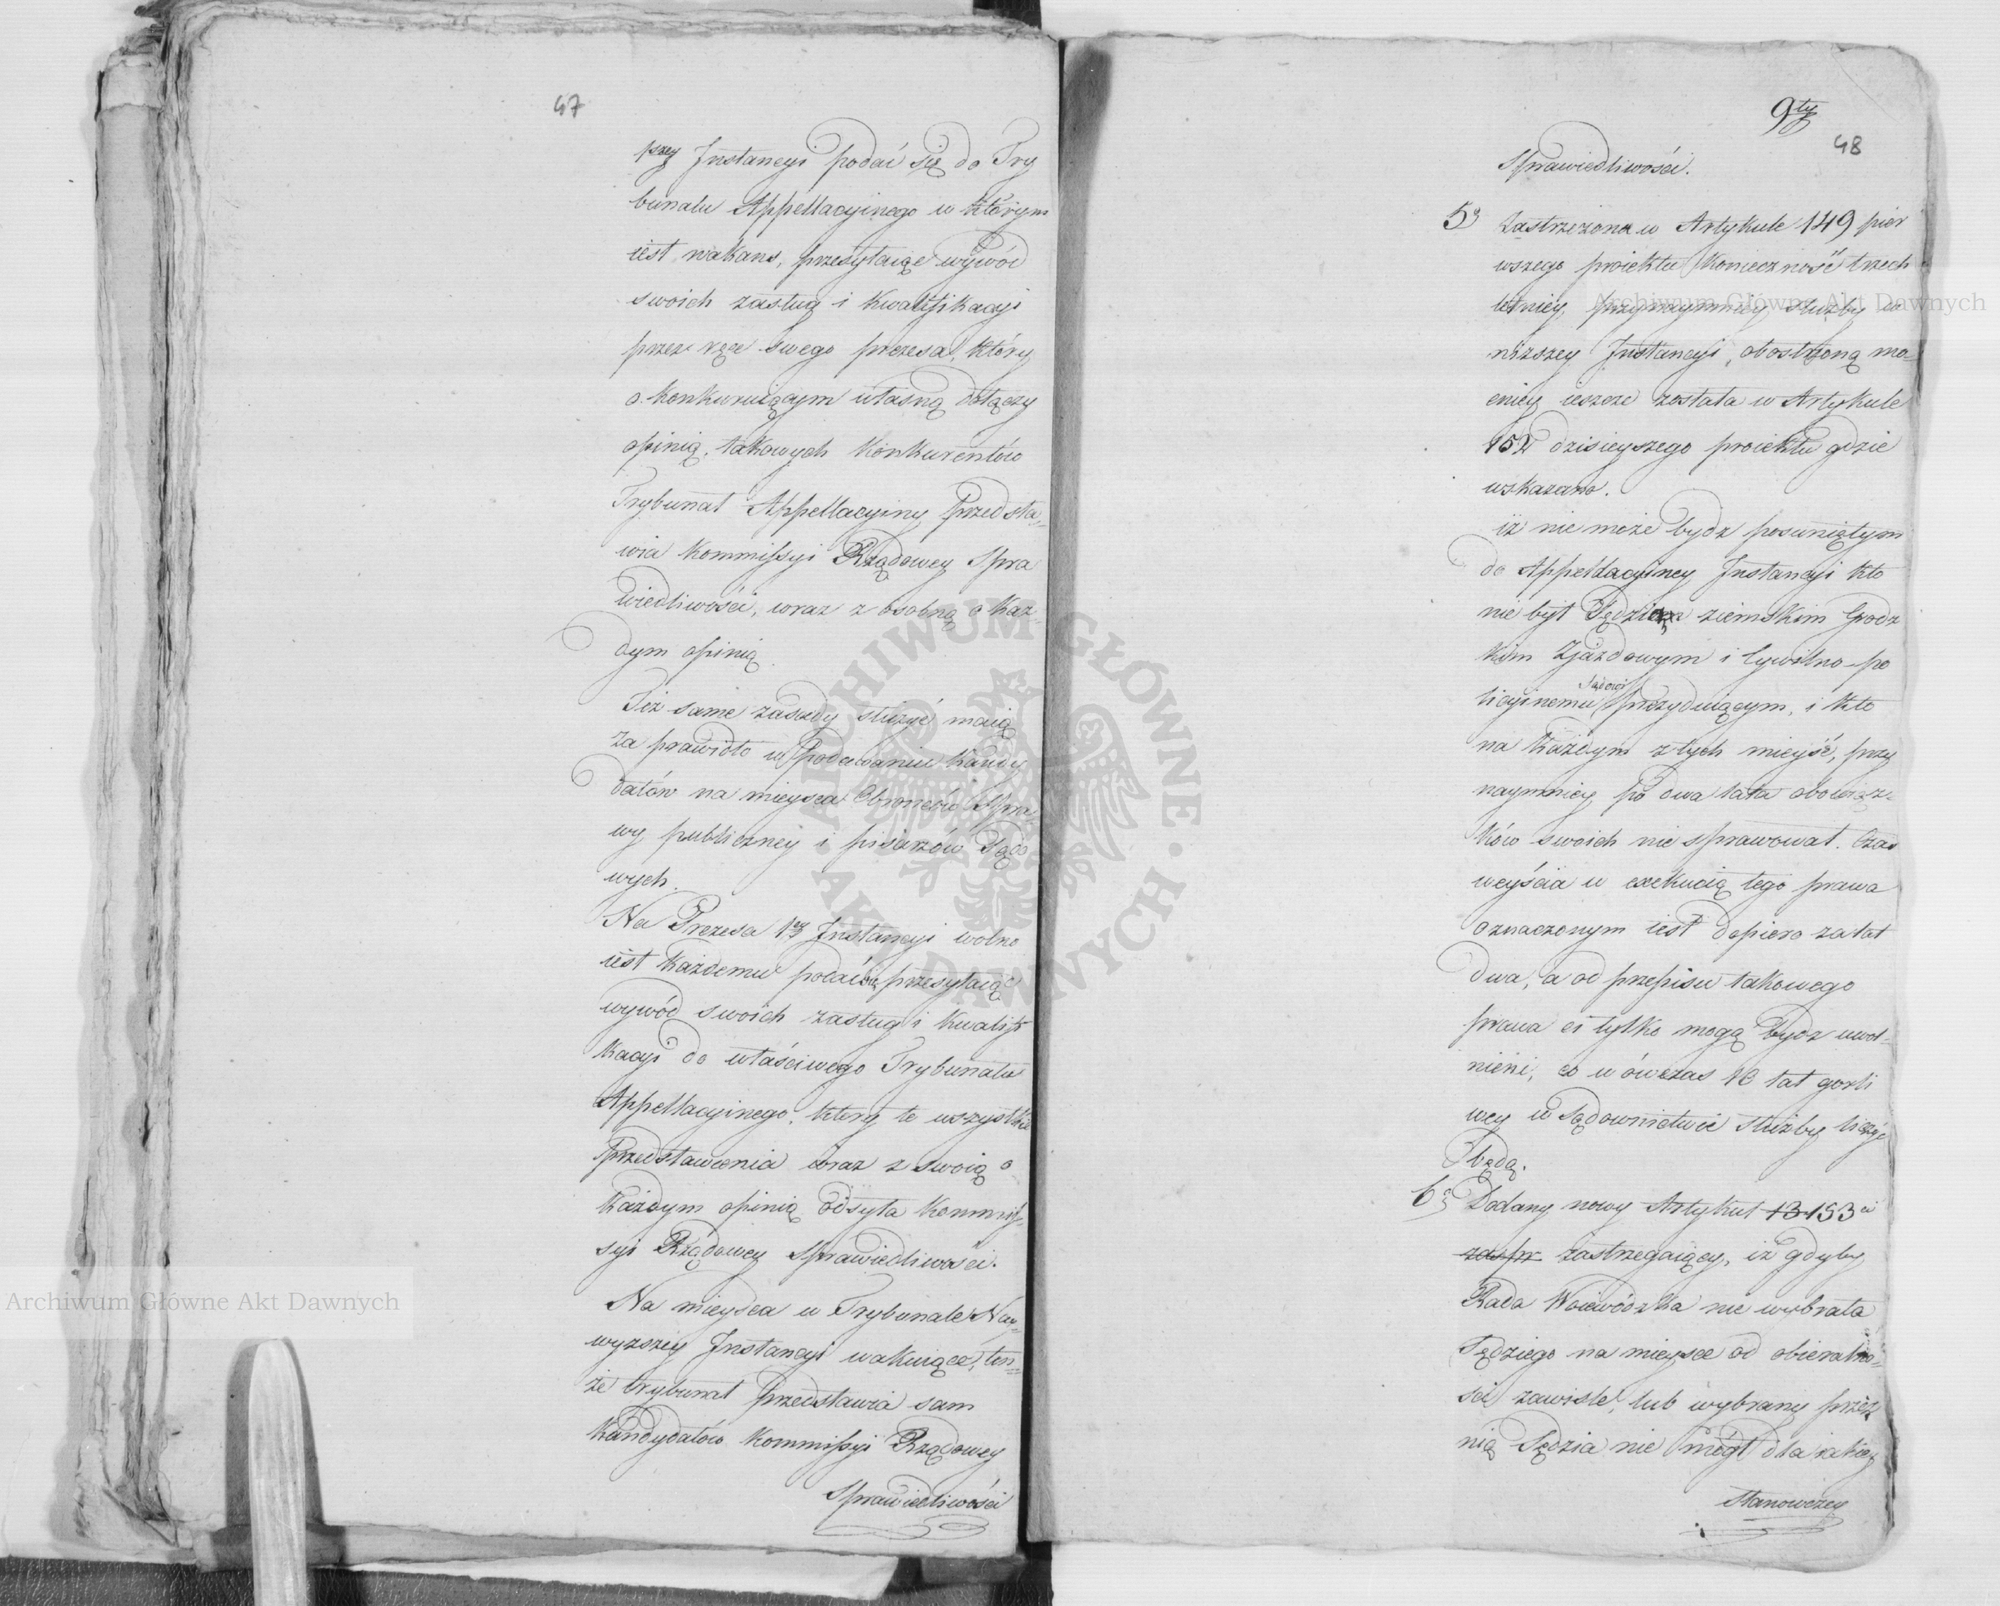 47
przy Instancyi podać się do Try
bunału Appellacyinego w którym
iest wakans, przesyłaiąc wywód
swoich zasług i kwalifikacyi
przez ręce swego prezesa, który
o konkuruiącym własną dołączy
opinią. takowych Konkurentów
Trybunał Appellacyiny przedsta-
wia Kommissyi Rządowey Spra
wiedliwości, wraz z osobną o każ-
dym opinią.
Też same zasady służyć maią
za prawidło w podawaniu kandy
datów na mieysca Obrońców Spra-
wy publiczney i pisarzów Sądo
wych.
Na Prezesa 1ey Instancyi wolno
iest każdemu podać się, przesyłaiąc
wywód swoich zasług i kwalifi
kacyi do właściwego Trybunału
Appellacyinego, który te wszystkie
przedstawienia wraz z swoią o
każdym opinią odsyła Kommis-
syi Rządowey Sprawiedliwości.
Na mieysca w Trybunale Nay-
wyższey Instancyi wakuiące, ten-
że trybunał przedstawia sam
Kandydatów Kommissyi Rządowey
Sprawiedliwości
9ty
48
Sprawiedliwości.
5o Zastrzeżona w Artykule 149 pier
wszego proiektu konieczność trzech
letniey, przynaymniey służby w
niższey Instancyi, obostrzoną mo-
cniey ieszcze została w Artykule
152 dzisieyszego proiektu gdzie
wskazano.
iż nie może bydź posuniętym
do Appellacyiney Instancyi kto
nie był Sędzią ziemskim Grodz
kim Zjazdowym i Cywilno-po
licyinemu Sądowi prezyduiącym, i kto
na każdym z tych mieysc, przy
naymniey po dwa lata obowiąz-
ków swoich nie sprawował. Czas
weyścia w exekucią tego prawa
oznaczonym iest dopiero za lat
dwa, a od przepisu takowego
prawa ci tylko mogą bydź uwol-
nieni, co wówczas 10 lat gorli
wey w Sądownictwie służby liczyć
będą.
6o Dodany nowy Artykuł 13 153ci
zaspr zastrzegaiący, iż gdyby
Rada Woiewódzka nie wybrała
Sędziego na mieysce od obieralno-
ści zawisłe, lub wybrany przez
nią Sędzia nie mógł dla iakiey
Stanowczey
Archiwum Główne Akt Dawnych
Archiwum Główne Akt Dawnych
ARCHIWUM GŁÓWNE · AKT DAWNYCH ·